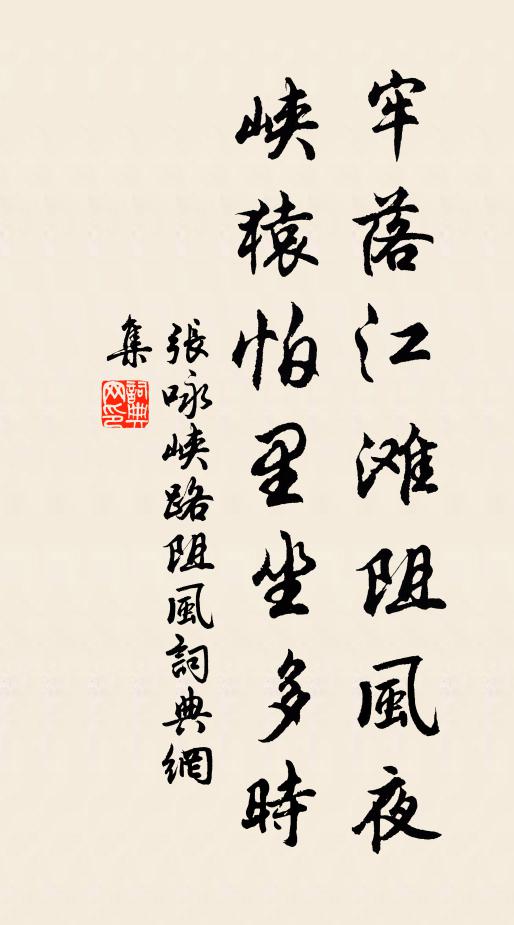 牢落江滩阻風夜
峡猿怕里坐多時
張咏峡路阻風詞典網
集
詞典
网印